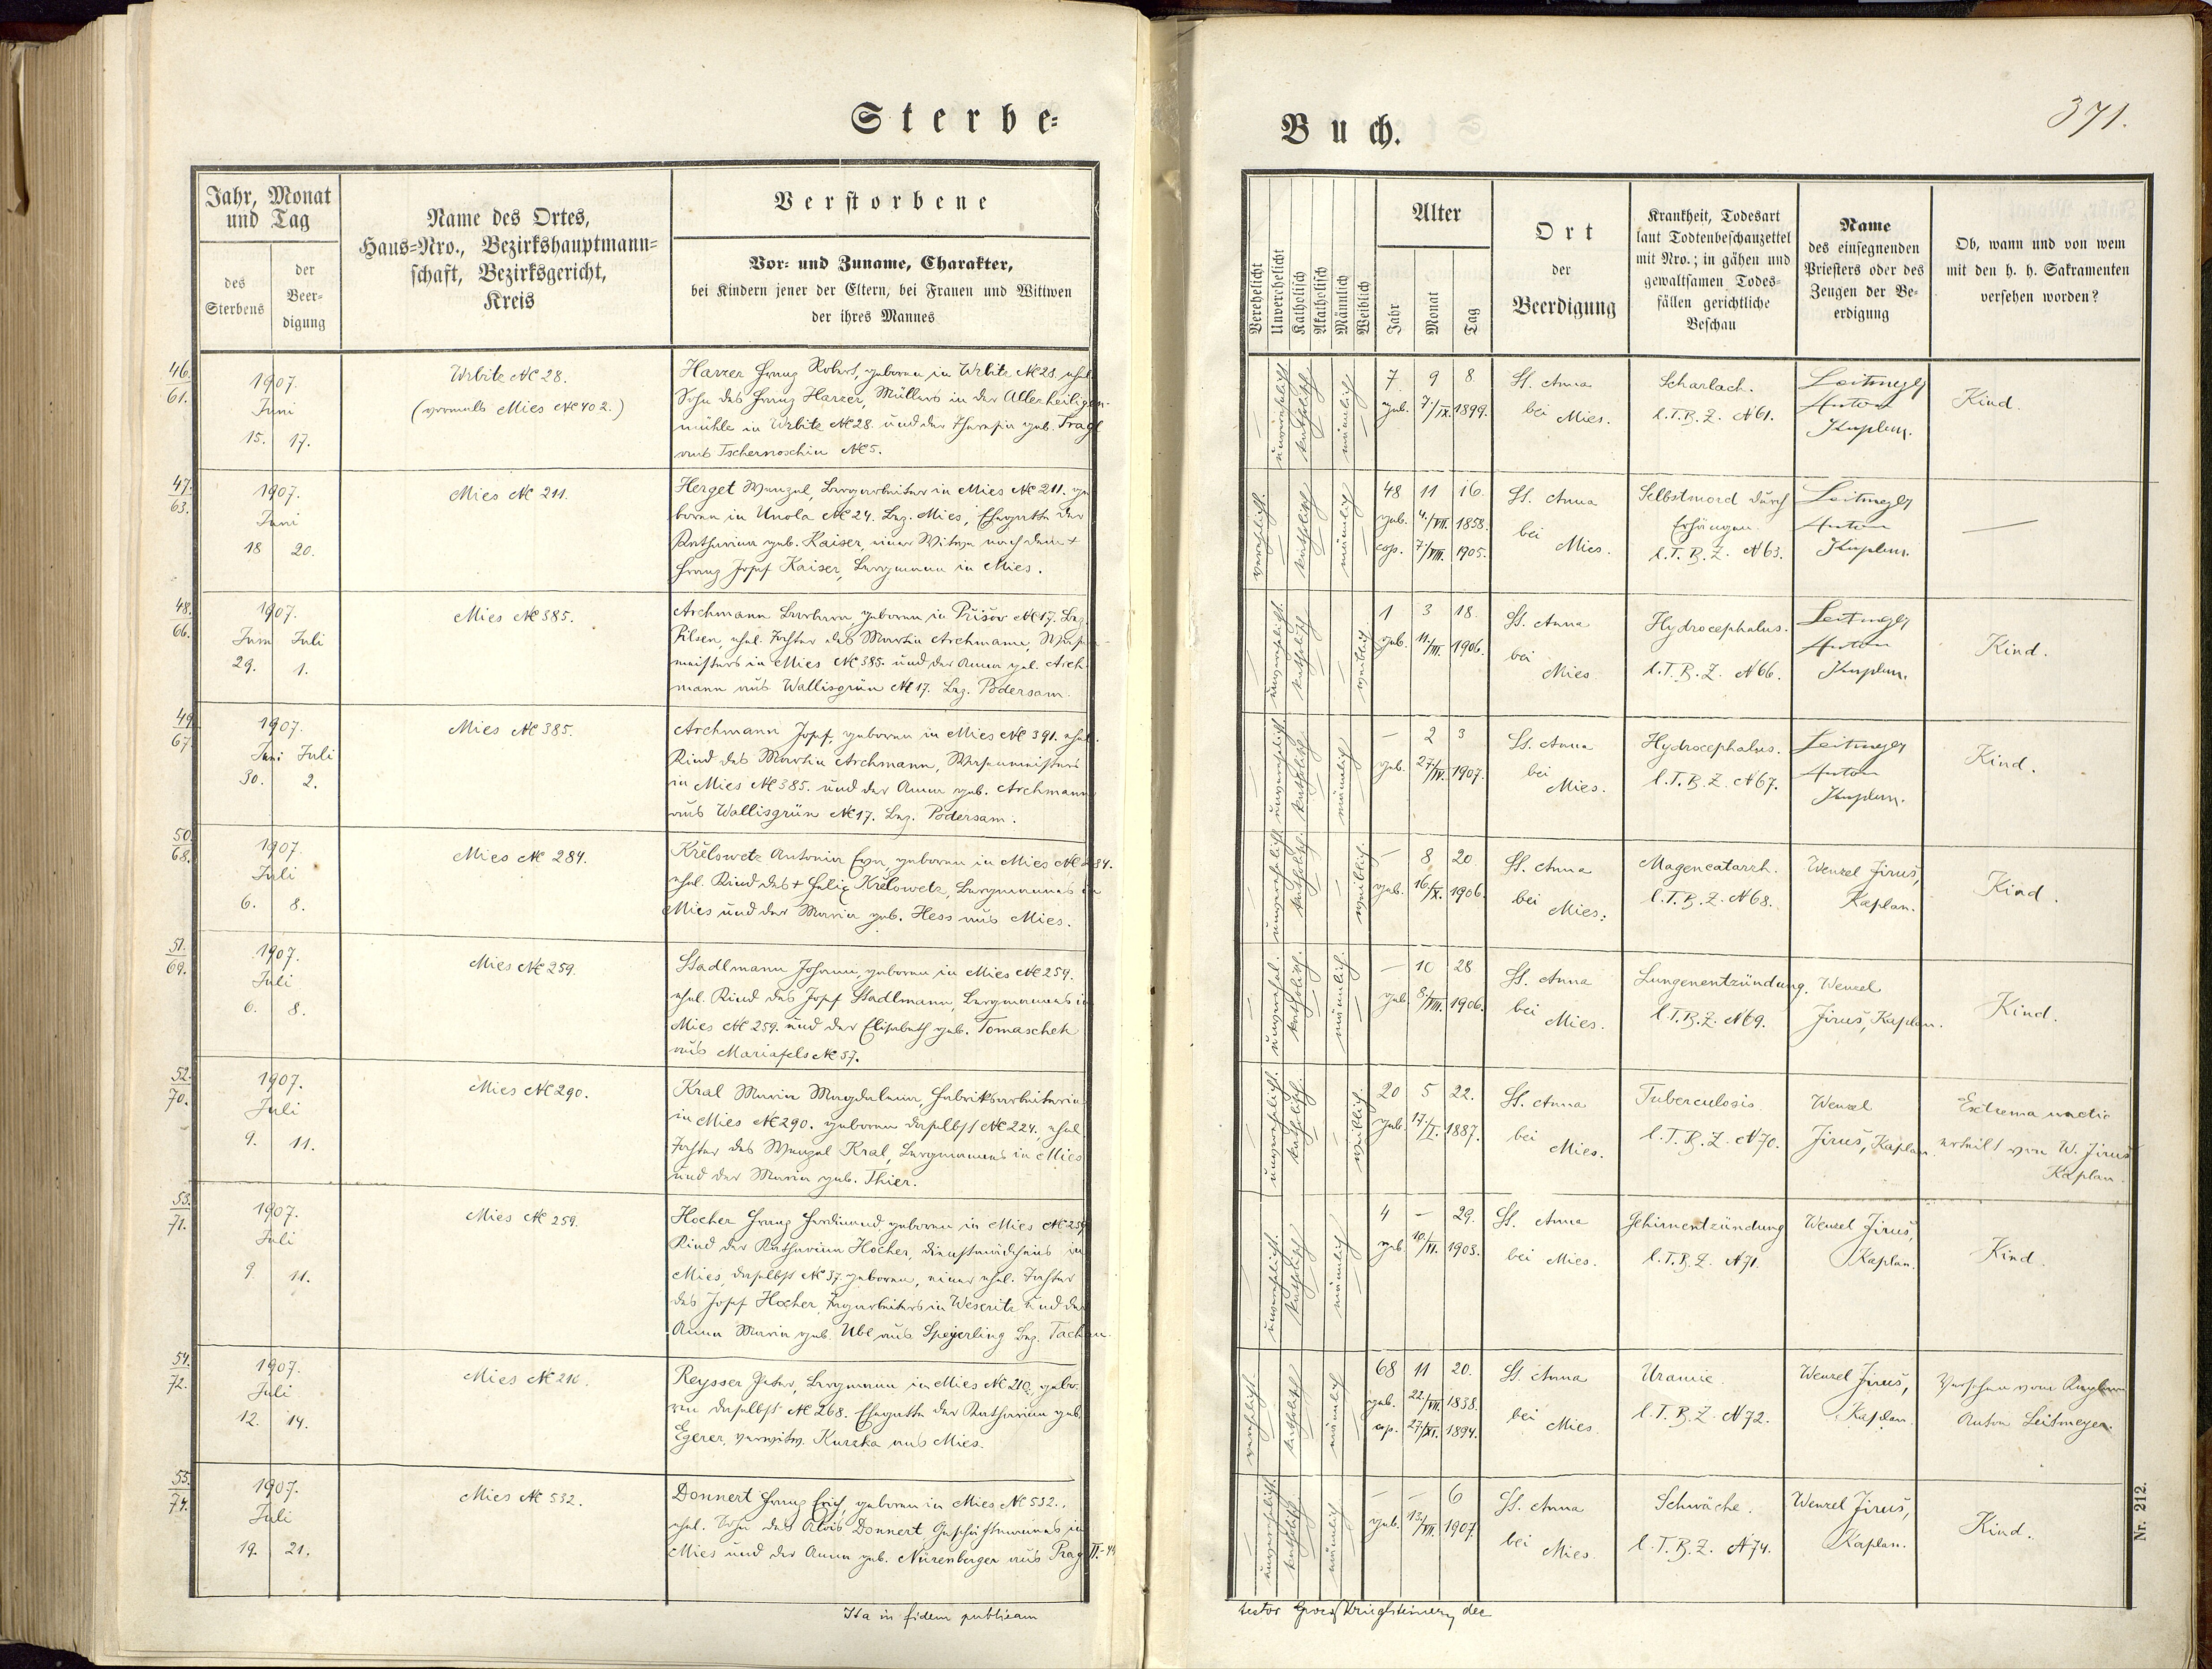 Sterbe-
Buch.
371.
Jahr, Monat und Tag
des Sterbens
der Beer-digung
Name des Ortes, Haus-Nro., Bezirkshauptmann-schaft, Bezirksgericht, Kreis
Verstorbene
Vor- und Zuname, Charakter,
bei Kindern jener der Eltern, bei Frauen und Wittwen
der ihres Mannes
Verehelicht
Unverehelicht
Katholisch
Akatholisch
Männlich
Weiblich
Alter
Jahr
Monat
Tag
Ort
der
Beerdigung
Krankheit, Todesart
laut Todtenbeschauzettel
mit Nro.; in gähen und
gewaltsamen Todes-
fällen gerichtliche
Beschau
Name
des einsegnenden
Priesters oder des
Zeugen der Be-
erdigung
Ob, wann und von wem
mit den h. h. Sakramenten
versehen worden?
46.
61.
1907.
Juni
15. 17.
Wrbitz № 28.
(vormals Mies № 402.)
Harzer Franz Robert, geboren in Wrbitz № 28. ehel.
Sohn des Franz Harzer, Müllers in der Allerheiligen-
mühle in Wrbitz № 28. und der Theresia geb. Tragl
aus Tschernoschin № 5.
unverehelicht katholisch männlich
7 9 8
geb. 7./IX. 1899.
St. Anna
bei Mies.
Scharlach.
l. T. B. Z. № 61.
Leitmeyer
Anton
Kaplan.
Kind.
47.
63.
1907.
Juni
18 20.
Mies № 211.
Herget Wenzel, Bergarbeiter in Mies № 211. ge-
boren in Unola № 24. Bez. Mies, Ehegatte der
Katharina geb. Kaiser, einer Witwe nach dem †
Franz Josef Kaiser, Bergmann in Mies.
verehelicht. katholisch männlich
48 11 16.
geb. 4./VII. 1858.
cop. 7./VIII. 1905.
St. Anna
bei Mies.
Selbstmord durch
Erhängen.
l. T. B. Z. № 63.
Leitmeyer
Anton
Kaplan.
48.
66.
1907.
Juni Juli
29. 1.
Mies № 385.
Archmann Barbara, geboren in Přišov № 17. Bez.
Pilsen, ehel. Tochter des Martin Archmann, Wasen-
meisters in Mies № 385. und der Anna geb. Arch-
mann aus Wallisgrün № 17. Bez. Podersam.
unverehelicht. katholisch weiblich.
1 3 18.
geb. 11./III. 1906.
St. Anna
bei
Mies
Hydrocephalus.
l. T. B. Z. № 66.
Leitmeyer
Anton
Kaplan.
Kind.
49.
67.
1907.
Juni Juli
30. 2.
Mies № 385.
Archmann Josef, geboren in Mies № 391. ehel.
Kind des Martin Archmann, Wasenmeisters
in Mies № 385. und der Anna geb. Archmann
aus Wallisgrün № 17. Bez. Podersam.
unverehelicht katholisch männlich
2 3
geb. 27./IV. 1907.
St. Anna
bei
Mies.
Hydrocephalus.
l. T. B. Z. № 67.
Leitmeyer
Anton
Kaplan.
Kind.
50.
68.
1907.
Juli
6. 8.
Mies № 284.
Křelowetz Antonia Eva, geboren in Mies № 284.
ehel. Kind des † Felix Křelowetz, Bergmannes in
Mies und der Maria geb. Hess aus Mies.
unverehelicht katholisch. weiblich.
8 20.
geb. 16/X. 1906.
St. Anna
bei Mies.
Magencatarrh.
l. T. B. Z. № 68.
Wenzel Jirus,
Kaplan.
Kind.
51.
69.
1907.
Juli
6. 8.
Mies № 259.
Stadlmann Johann, geboren in Mies № 259.
ehel. Kind des Josef Stadlmann, Bergmannes in
Mies № 259. und der Elisabeth geb. Tomaschek
aus Mariafels № 37.
unverehel. katholisch. männlich
10 28
geb. 8./VIII. 1906.
St. Anna
bei
Mies.
Lungenentzündung.
l. T. B. Z. № 69.
Wenzel
Jirus, Kaplan.
Kind.
52.
70.
1907.
Juli
9. 11.
Mies № 290.
Kral Maria Magdalena, Fabriksarbeiterin
in Mies № 290. geboren daselbst № 224. ehel.
Tochter des Wenzel Kral, Bergmannes in Mies
und der Maria geb. Thier.
unverehelicht. katholisch. weiblich.
20 5 22.
geb. 17./I. 1887.
St. Anna
bei
Mies.
Tuberculosis.
l. T. B. Z. № 70.
Wenzel
Jirus, Kaplan
Extrema unctio
erteilt von W. Jirus
Kaplan.
53.
71.
1907.
Juli
9. 11.
Mies № 259.
Hocher Franz Ferdinand, geboren in Mies № 259
Kind der Katharina Hocher, Dienstmädchens in
Mies, daselbst № 37. geboren, einer ehel. Tochter
des Josef Hocher, Tagarbeiters in Weseritz und der
Anna Maria geb. Ubl aus Speyerling Bez. Tachau.
unverehelicht. katholisch männlich
4 – 29.
geb. 10./VI. 1903.
St. Anna
bei Mies.
Gehirnentzündung
l. T. B. Z. № 71.
Wenzel Jirus,
Kaplan.
Kind.
54.
72.
1907.
Juli
12. 14.
Mies № 210.
Reysser Peter, Bergmann in Mies № 210, gebo-
ren daselbst № 268. Ehegatte der Katharina geb.
Egerer, verwitw. Kurzka aus Mies.
verehelicht. katholisch männlich
68 11 20.
geb. 22./VII. 1838.
cop. 27./XI. 1894.
St. Anna
bei
Mies
Urämie.
l. T. B. Z. № 72.
Wenzel Jirus,
Kaplan.
Versehen vom Kaplan
Anton Leitmeyer.
55.
74.
1907.
Juli
19. 21.
Mies № 532.
Donnert Franz Erich, geboren in Mies № 532.,
ehel. Sohn des Alois Donnert, Geschäftsmannes in
Mies und der Anna geb. Nürenberger aus Prag II.-44
unverehelicht katholisch männlich
– – 6
geb. 13./VII. 1907.
St. Anna
bei Mies.
Schwäche.
l. T. B. Z. № 74.
Wenzel Jirus,
Kaplan.
Kind.
Ita in fidem publicam
testor
Nr. 212.